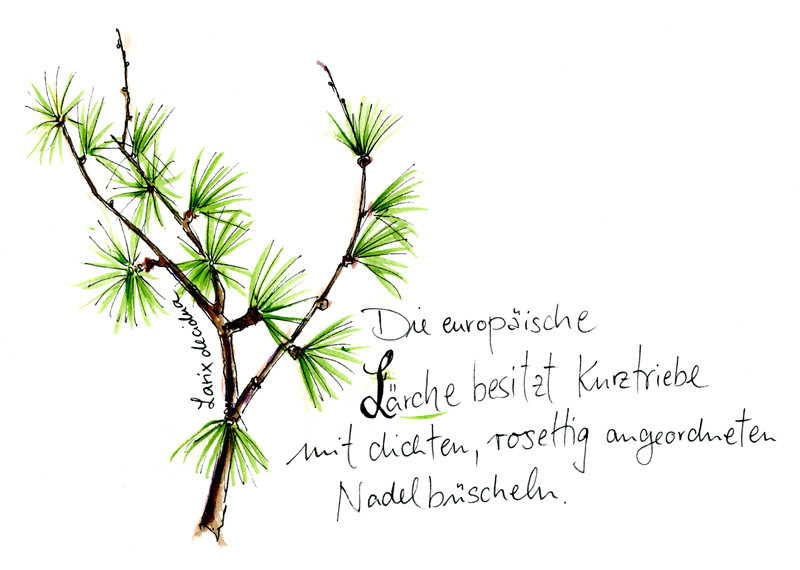 Larix decidua
Die europäische
Lärche besitzt Kurztriebe
mit dichten, rosettig angeordneten
Nadelbüscheln.